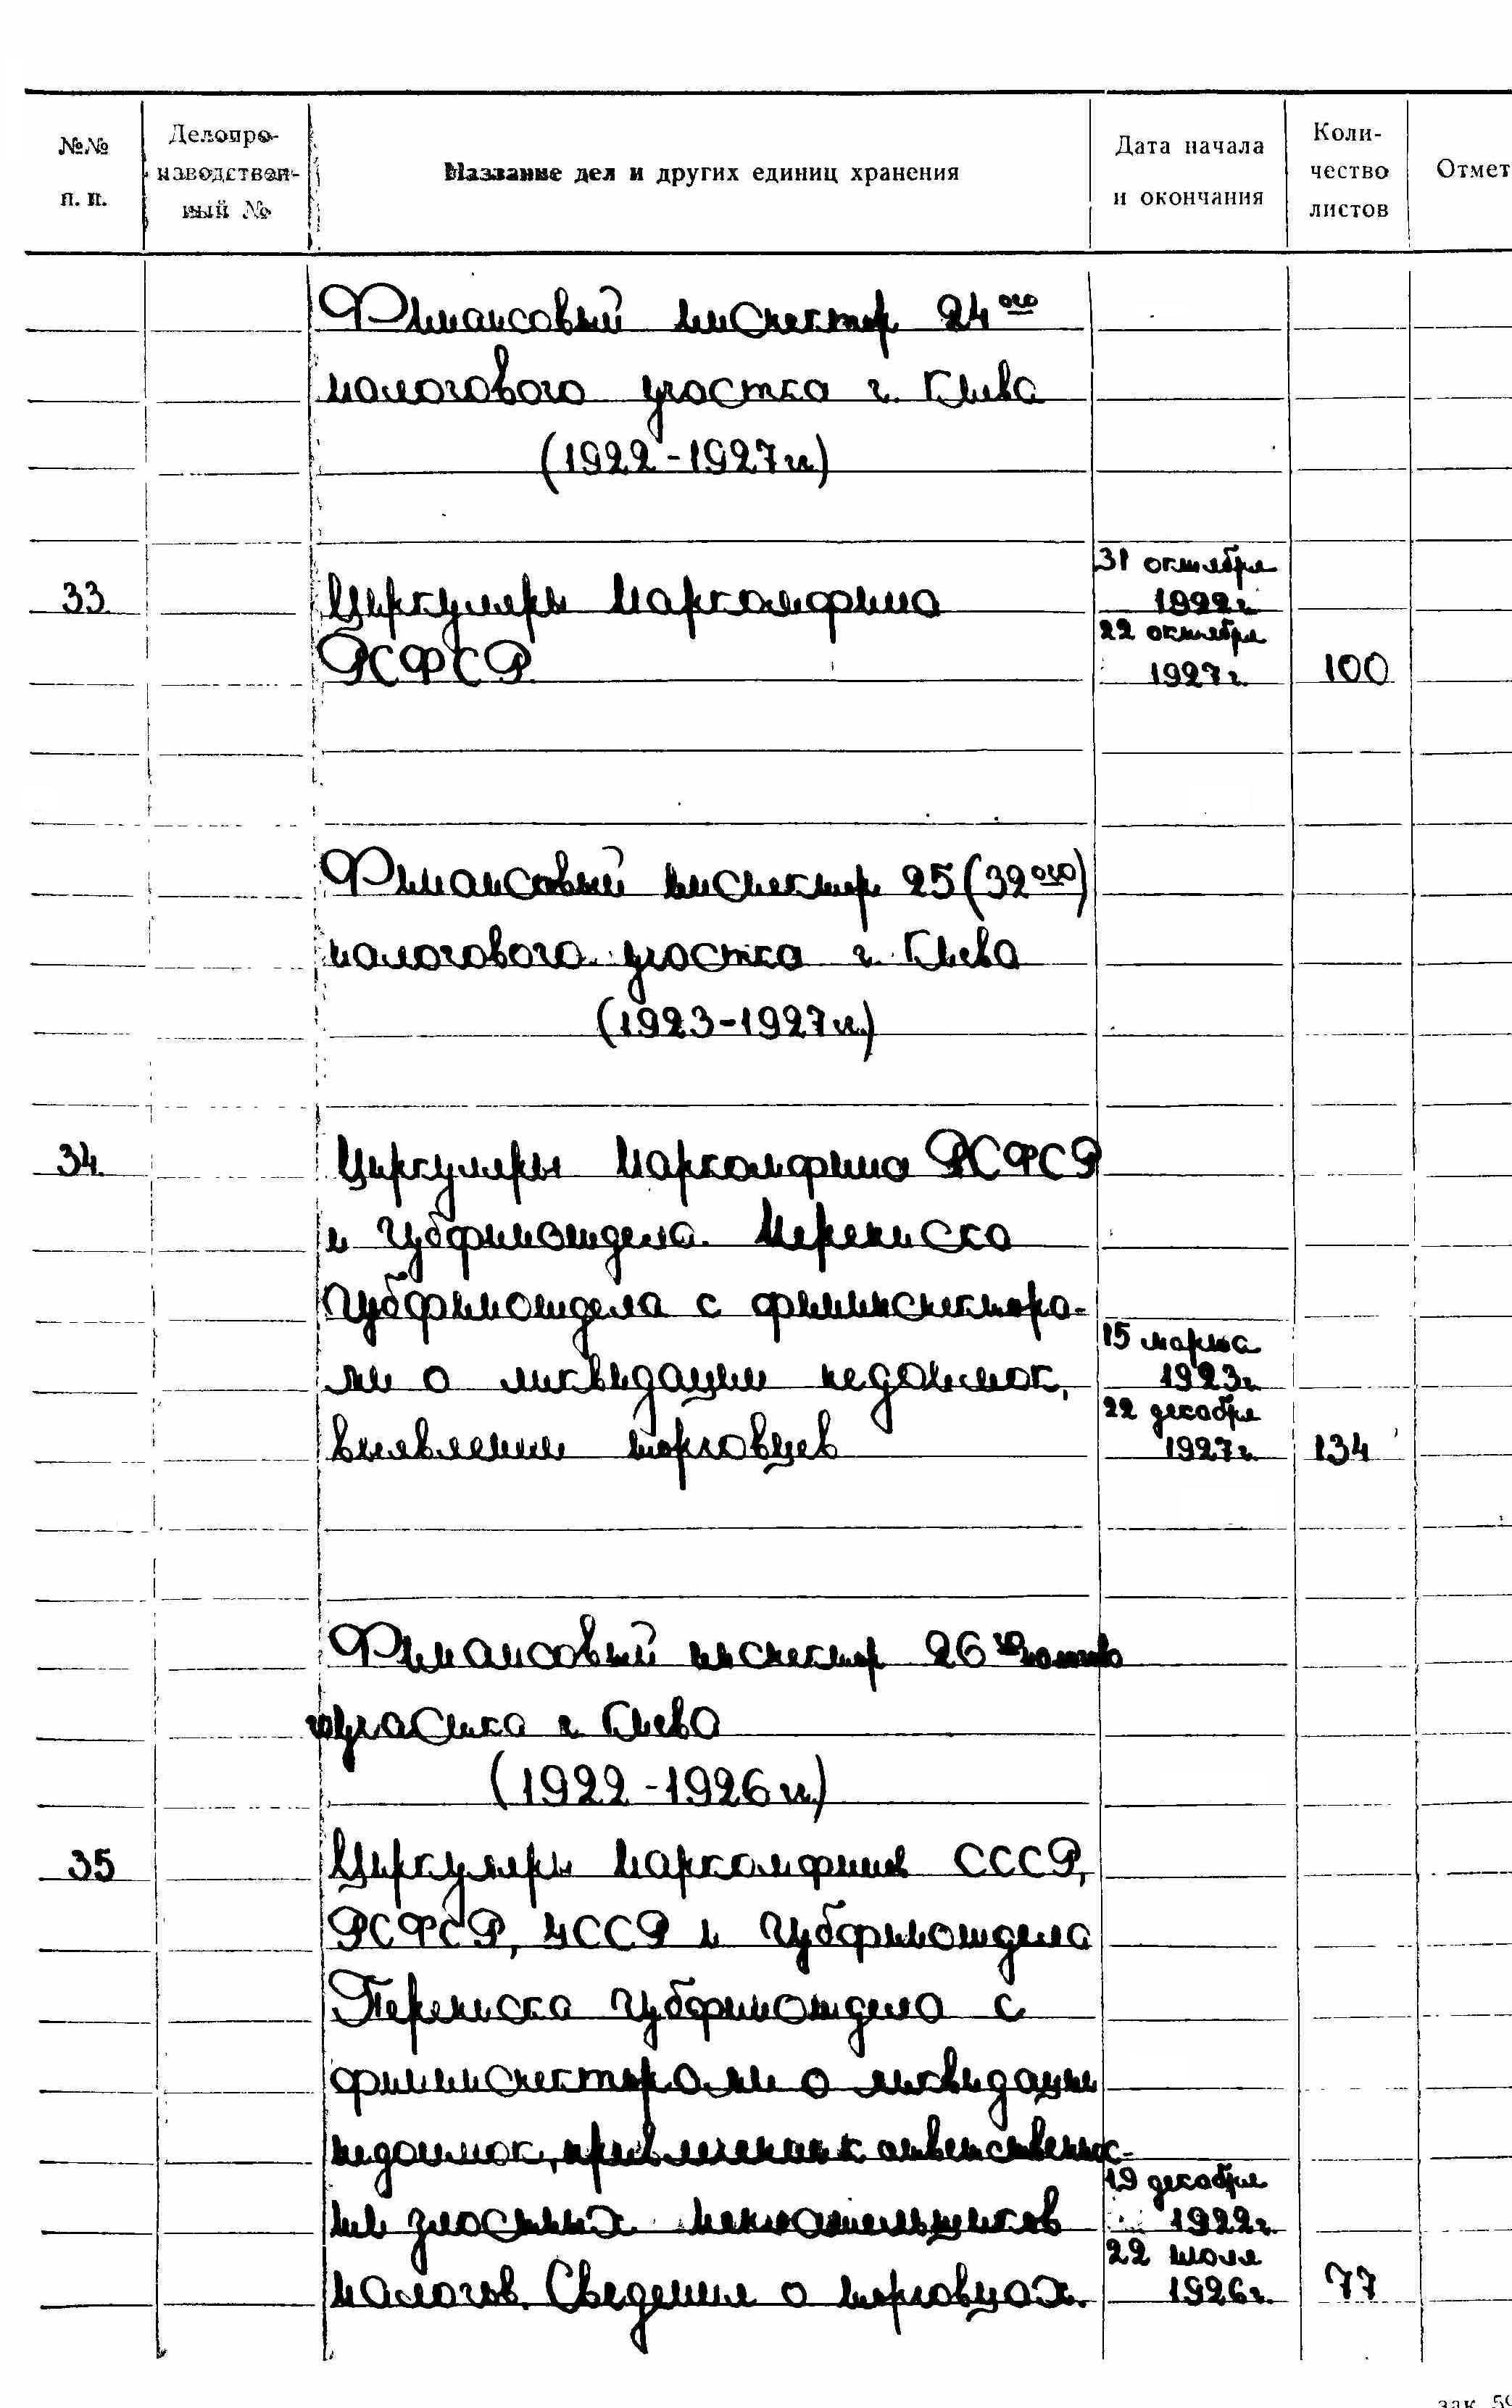 №№ п. п.
Делопро-
изводствен-
ный №
Название дел и других единиц хранения
Дата начала
и окончания
Коли-
чество
листов
Отмет
Финансовый инспектор 24ого
налогового участка г. Киева
(1922-1927гг)
31 октября
33 Циркуляры Наркомфина 1922г.
22 октября
РСФСР 1927г. 100
Финансовый инспектор 25 (32ого)
налогового участка г. Киева
(1923-1927гг.)
34 Циркуляры Наркомфина РСФСР
и Губфинотдела. Переписка
Губфинотдела с фининспектора-
15 марта
ми о ликвидации недоимок, 1923г.
22 декабря
выявлении торговцев 1927г. 134
Финансовый инспектор 26го налогово
го участка г. Киева
(1922-1926гг)
35 Циркуляры Наркомфинов СССР,
РСФСР, УССР и Губфинотдела
Переписка Губфинотдела с
фининспекторами о ликвидации
недоимок, привлечении к ответственнос-
19 декабря
ти злостных неплательщиков 1922г.
22 июля
налогов. Сведения о торговцах. 1926г. 77
зак. 59